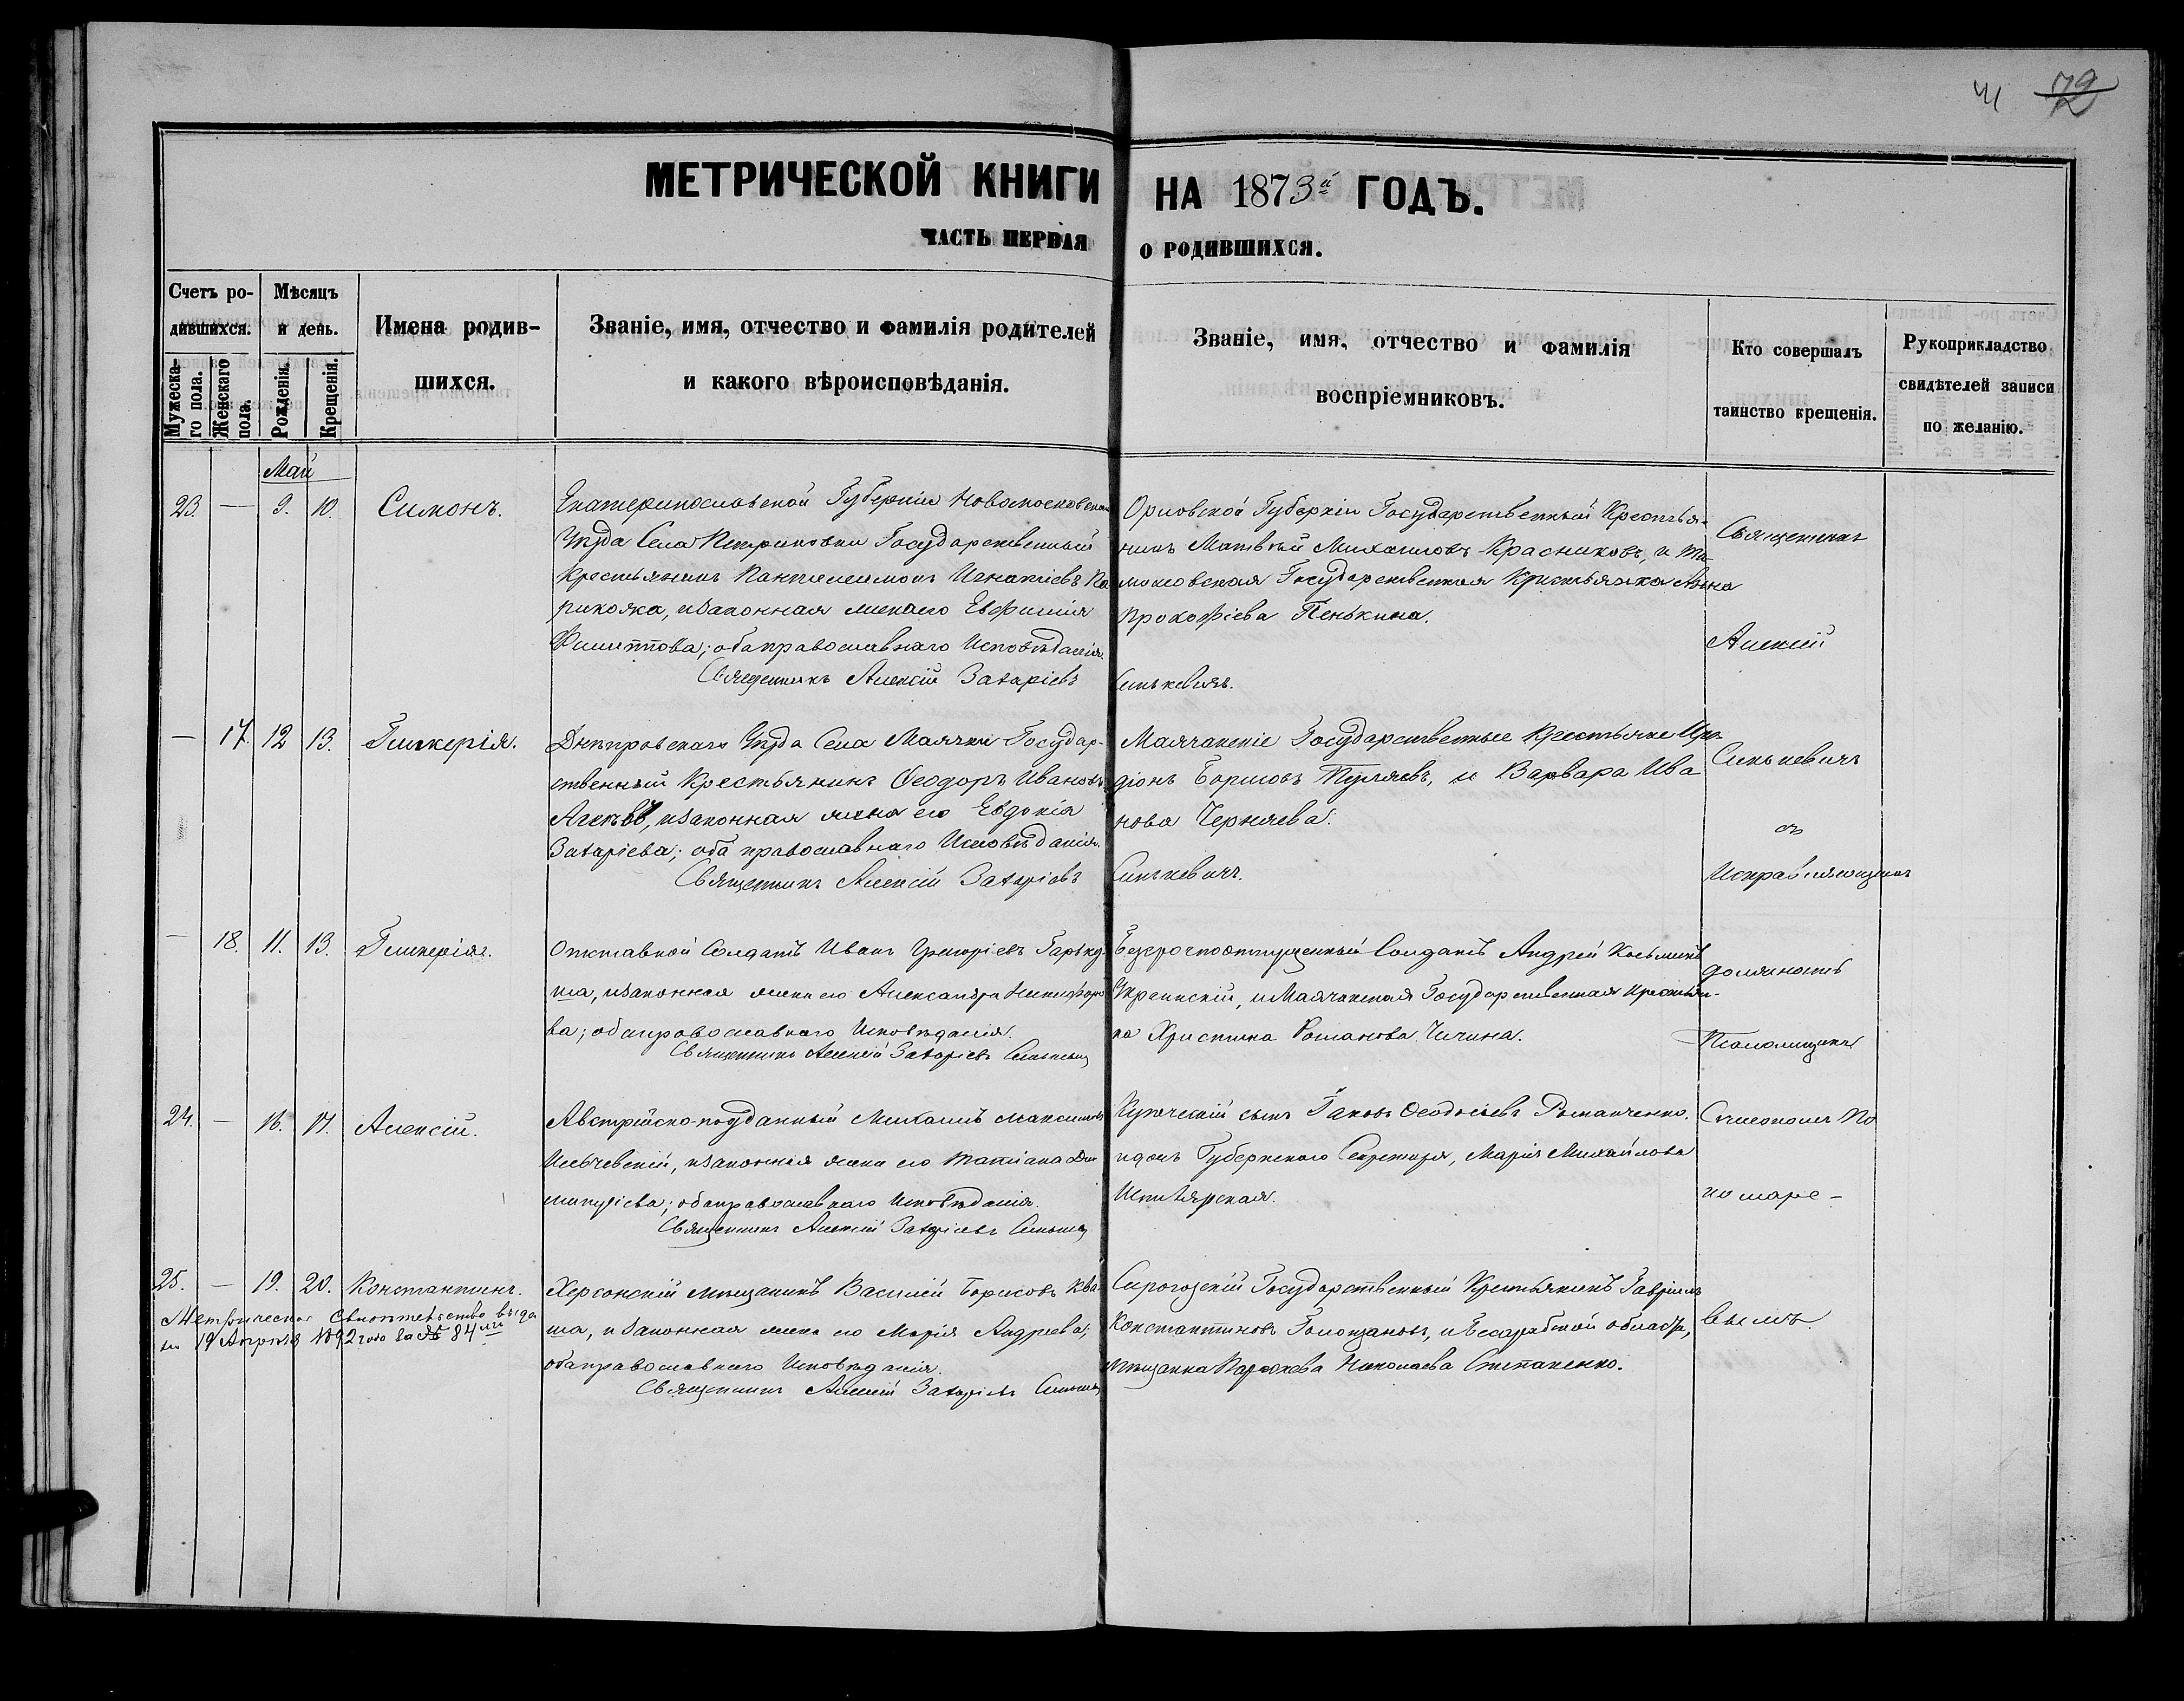 41 72
МЕТРИЧЕСКОЙ КНИГИ НА 1873й ГОДЪ.
ЧАСТЬ ПЕРВАЯ О РОДИВШИХСЯ.
Счетъ ро-
дившихся.
Мужеска-
го пола.
Женскаго
пола.
Мѣсяцъ
и день.
Рожденія.
Крещенія.
Имена родив-
шихся.
Званіе, имя, отчество и фамилія родителей
и какого вѣроисповѣданія.
Званіе, имя, отчество и фамилія
воспріемниковъ.
Кто совершалъ
таинство крещенія.
Рукоприкладство
свидѣтелей записи
по желанію.
Май
23. — 9. 10. Симонъ.
Екатеринославской Губерніи Новомосковскаго
Уѣзда Села Петриковки Государственный
Крестьянинъ Пантелеимонъ Игнатіевъ
и законная жена его Евфимія
Филиппова; оба православнаго Исповѣданія.
Священникъ Алексій Захаріевъ Синькевичъ.
Орловской Губерніи Государственный Крестья-
нинъ Матвѣй Михаиловъ Красниковъ, и
Государственная Крестьянка Анна
Прокофіева Пенькина.
— 17. 12 13. Гликерія.
Днѣпровскаго Уѣзда Села Маячки Государ-
ственный Крестьянинъ Феодоръ Ивановъ
и законная жена его Евдокія
Захаріева; оба православнаго Исповѣданія.
Священникъ Алексій Захаріевъ Синькевичъ.
Маячанскіе Государственные Крестьяне Ири-
діонъ Борисовъ и Варвара Ива
нова Черняева.
— 18. 11. 13. Гликерія.
Отставной Солдатъ Иванъ Григоріевъ Гарьку-
ша, и законная жена его Александра Никифоро
ва; оба православнаго Исповѣданія.
Священникъ Алексій Захаріевъ Синькевичъ
Безсрочноотпущенный Солдатъ Андрей Козьминъ
Украинскій, и Маячанская Государственная Крестьян-
ка Христина Романова Чичина.
24. — 16. 17. Алексій.
Австрійско-подданный Михаилъ Максимовъ
и законная жена его Татіана Ди
митріева; оба православнаго Исповѣданія.
Священникъ Алексій Захаріевъ Синькевичъ
Купеческій сынъ Іаковъ Феодосіевъ Романченко.
Губернскаго Секретаря, Марія Михайлова
25. — 19. 20. Константинъ.
Метрическое свидѣтельство выда
но 19 Апрѣля 1892 года за № 84мъ
Херсонскій мѣщанинъ Василій Борисовъ Ква
ша, и законная жена его Марія Андреева;
оба православнаго Исповѣданія.
Священникъ Алексій Захаріевъ Синькевичъ
Сирогозскій Государственный Крестьянинъ Гавріилъ
Константиновъ Голощаповъ, и Бесарабской области,
мѣщанка Параскева Николаева Степаненко.
Священникъ
Алексій
Синькевичъ
съ
Исправляющимъ
должность
Псаломщика
Стефаномъ По
номаре-
вымъ.